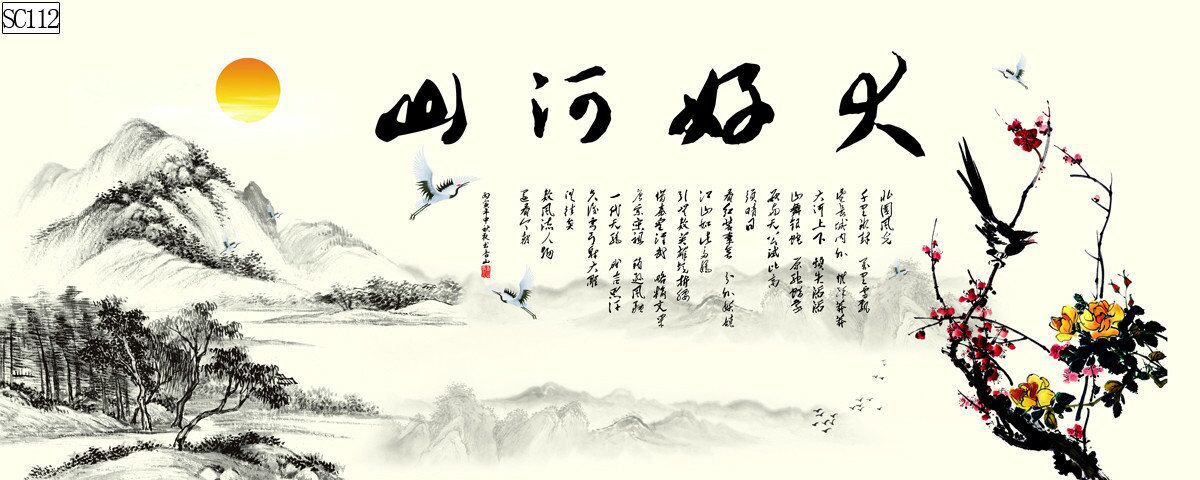 SC112
大好河山
北国风光
千里冰封 万里雪飘
望长城内外 惟余莽莽
大河上下 顿失滔滔
山舞银蛇 原驰蜡象
欲与天公试比高
须晴日
看红装素裹 分外妖娆
江山如此多娇
引无数英雄竞折腰
惜秦皇汉武 略输文采
唐宗宋祖 稍逊风骚
一代天骄 成吉思汗
只识弯弓射大雕
俱往矣
数风流人物
还看今朝